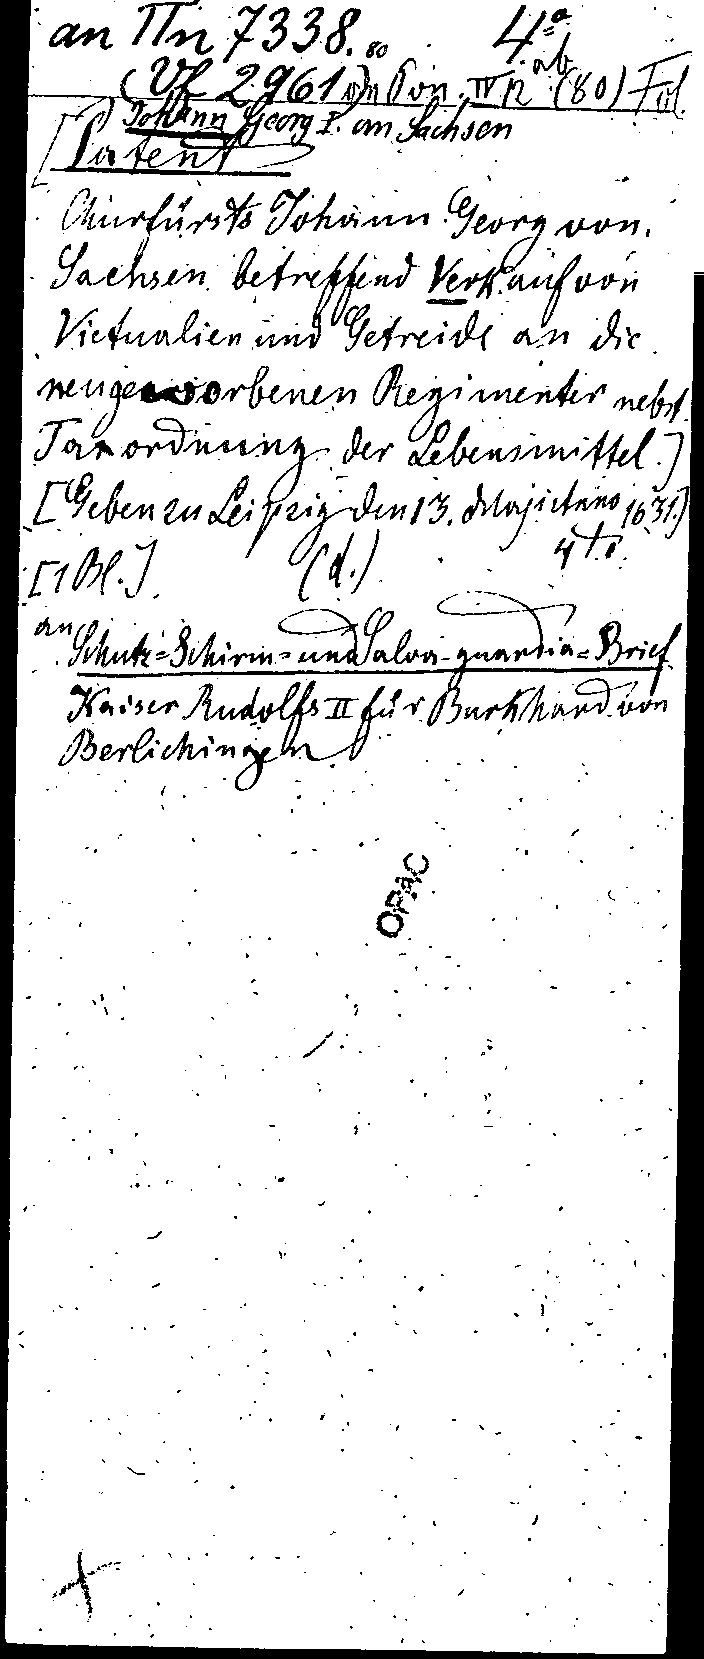 an IIn 7338. 80 4°
(Vf 2961) an Pon. IV n ab (80) Fol
Johann Georg I. an Sachsen
[Patent
Churfürsts Johann Georg von
Sachsen betreffend Verkauf von
Victualien und Getreide an die
neugeworbenen Regimenter nebst
Taxordnung der Lebensmittel.]
[Geben zu Leipzig den 13. Maji Anno 1631.]
4to.
[1 Bl.] (d.)
an
Schutz=Schirm= und Salva-guardia=Brief
Kaiser Rudolfs II für Burkhard von
Berlichingen
OPAC